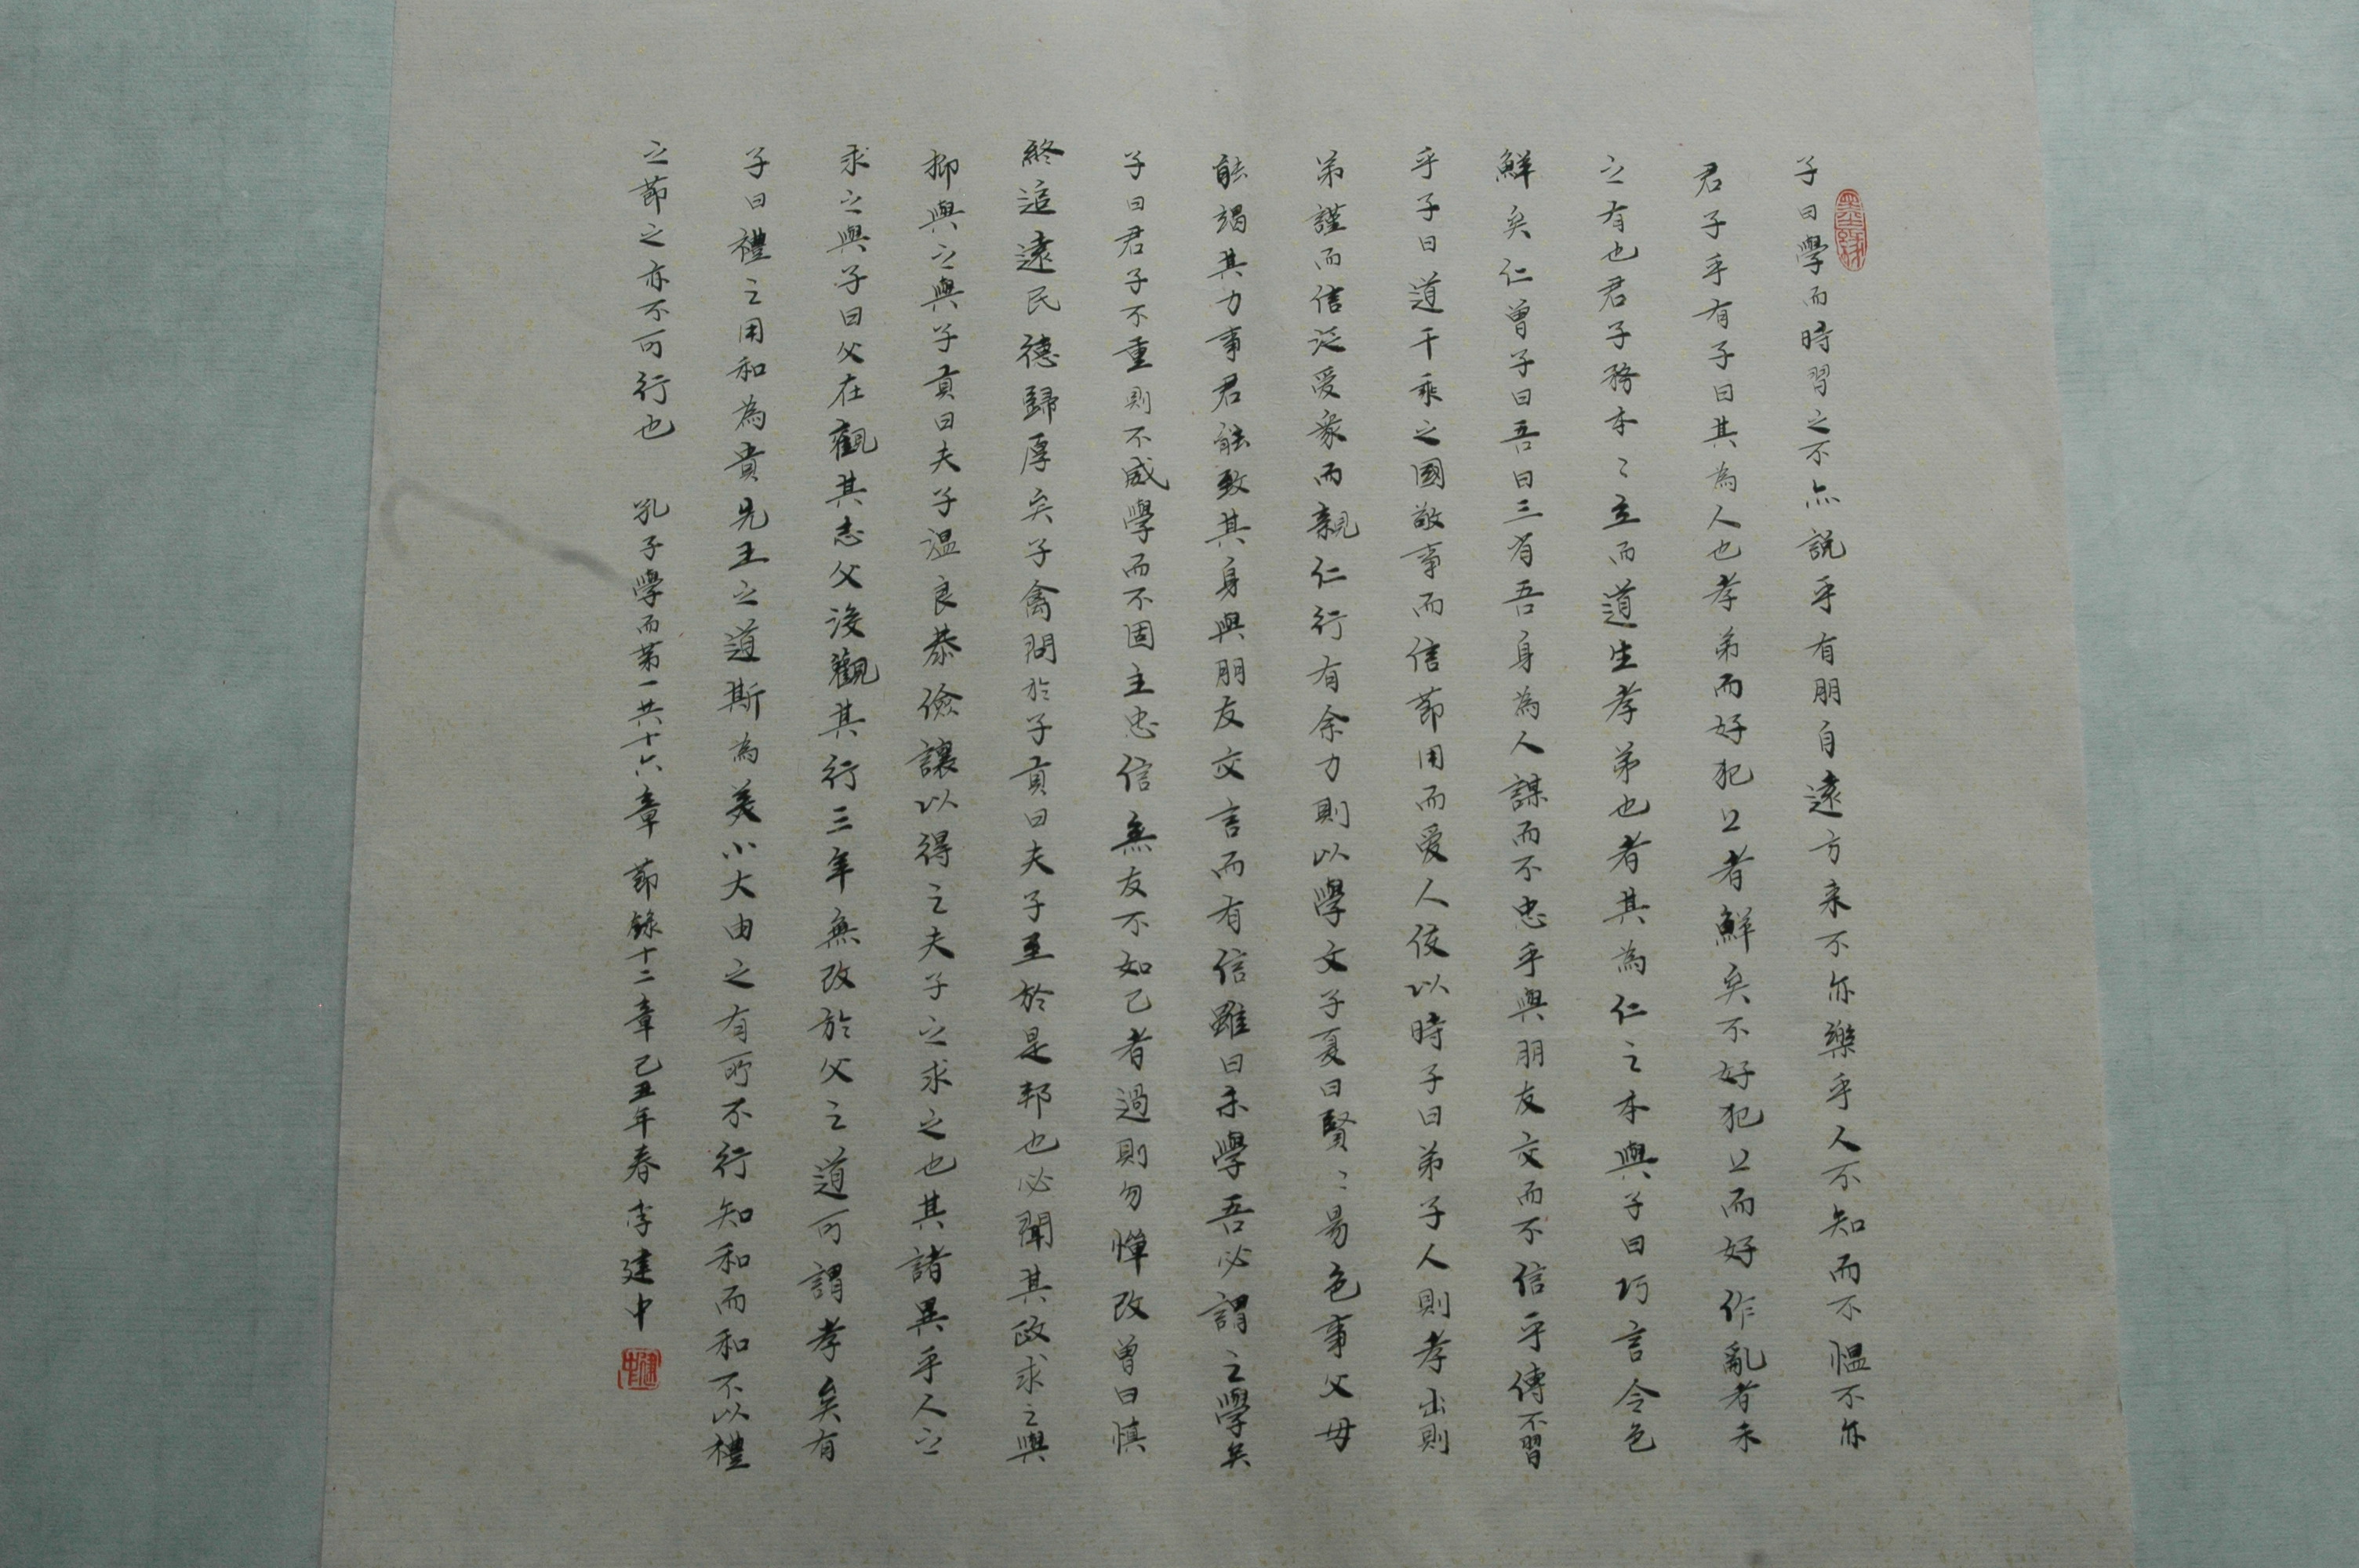 子曰學而時習之不亦説乎有朋自遠方来不亦樂乎人不知而不愠不亦
君子乎有子曰其為人也孝弟而好犯上者鮮矣不好犯上而好作亂者未
之有也君子務本〻立而道生孝弟也者其為仁之本與子曰巧言令色
鮮矣仁曾子曰吾日三省吾身為人謀而不忠乎與朋友交而不信乎傳不習
乎子曰道千乘之國敬事而信節用而愛人使以時子曰弟子人則孝出則
弟謹而信泛愛衆而親仁行有余力則以學文子夏曰賢〻易色事父母
能竭其力事君能致其身與朋友交言而有信雖曰未學吾必謂之學矣
子曰君子不重則不威學而不固主忠信無友不如己者過則勿憚改曾曰慎
終追遠民德歸厚矣子禽問於子貢曰夫子至於是邦也必聞其政求之與
抑與之與子貢曰夫子温良恭儉讓以得之夫子之求之也其諸異乎人之
求之與子曰父在觀其志父後觀其行三年無改於父之道可謂孝矣有
子曰禮之用和為貴先王之道斯為美小大由之有所不行知和而和不以禮
之節之亦不可行也 孔子學而第一共十六章 節錄十二章己丑年春李建中
建中